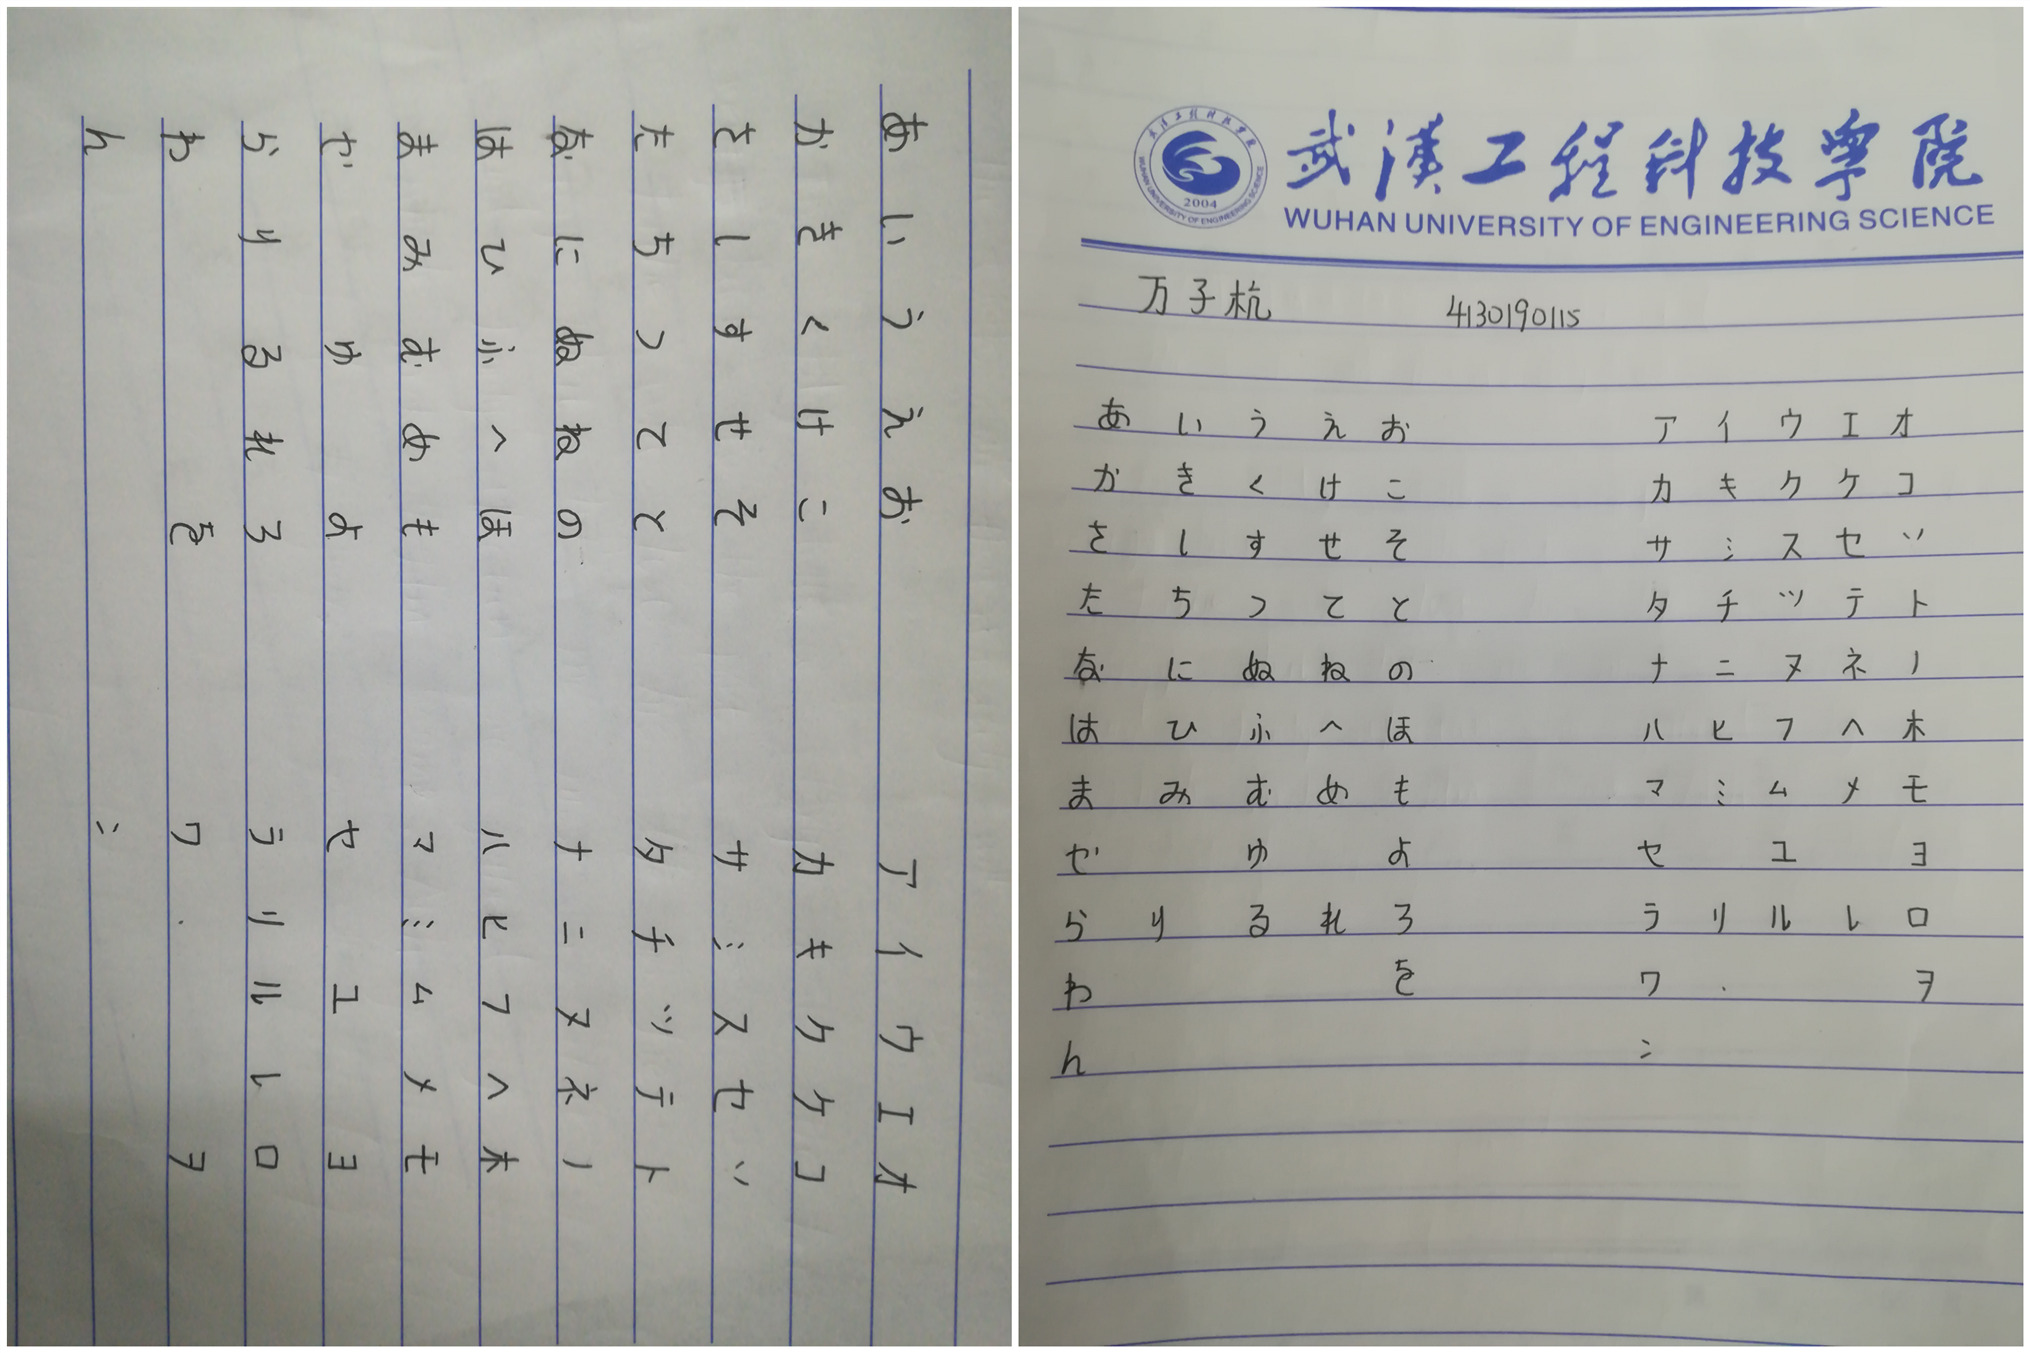 あ い う え お ア イ ウ エ オ
か き く け こ カ キ ク ケ コ
さ し す せ そ サ ミ ス セ ソ
た ち つ て と タ チ ツ テ ト
な に ぬ ね の ナ ニ ヌ ネ ノ
は ひ ふ へ ほ ハ ヒ フ ヘ ホ
ま み む め も マ ミ ム メ モ
や ゆ よ セ ユ ヨ
ら り る れ ろ ラ リ ル レ ロ
わ を ワ ヲ
ん
武漢工程科技學院
WUHAN UNIVERSITY OF ENGINEERING SCIENCE
武漢工程科技學院
WUHAN UNIVERSITY OF ENGINEERING SCIENCE
2004
万子杭 4130190115
あ い う え お ア イ ウ エ オ
か き く け こ カ キ ク ケ コ
さ し す せ そ サ ミ ス セ ソ
た ち つ て と タ チ ツ テ ト
な に ぬ ね の ナ ニ ヌ ネ ノ
は ひ ふ へ ほ ハ ヒ フ ヘ ホ
ま み む め も マ ミ ム メ モ
や ゆ よ セ ユ ヨ
ら り る れ ろ ラ リ ル レ ロ
わ を ワ ヲ
ん